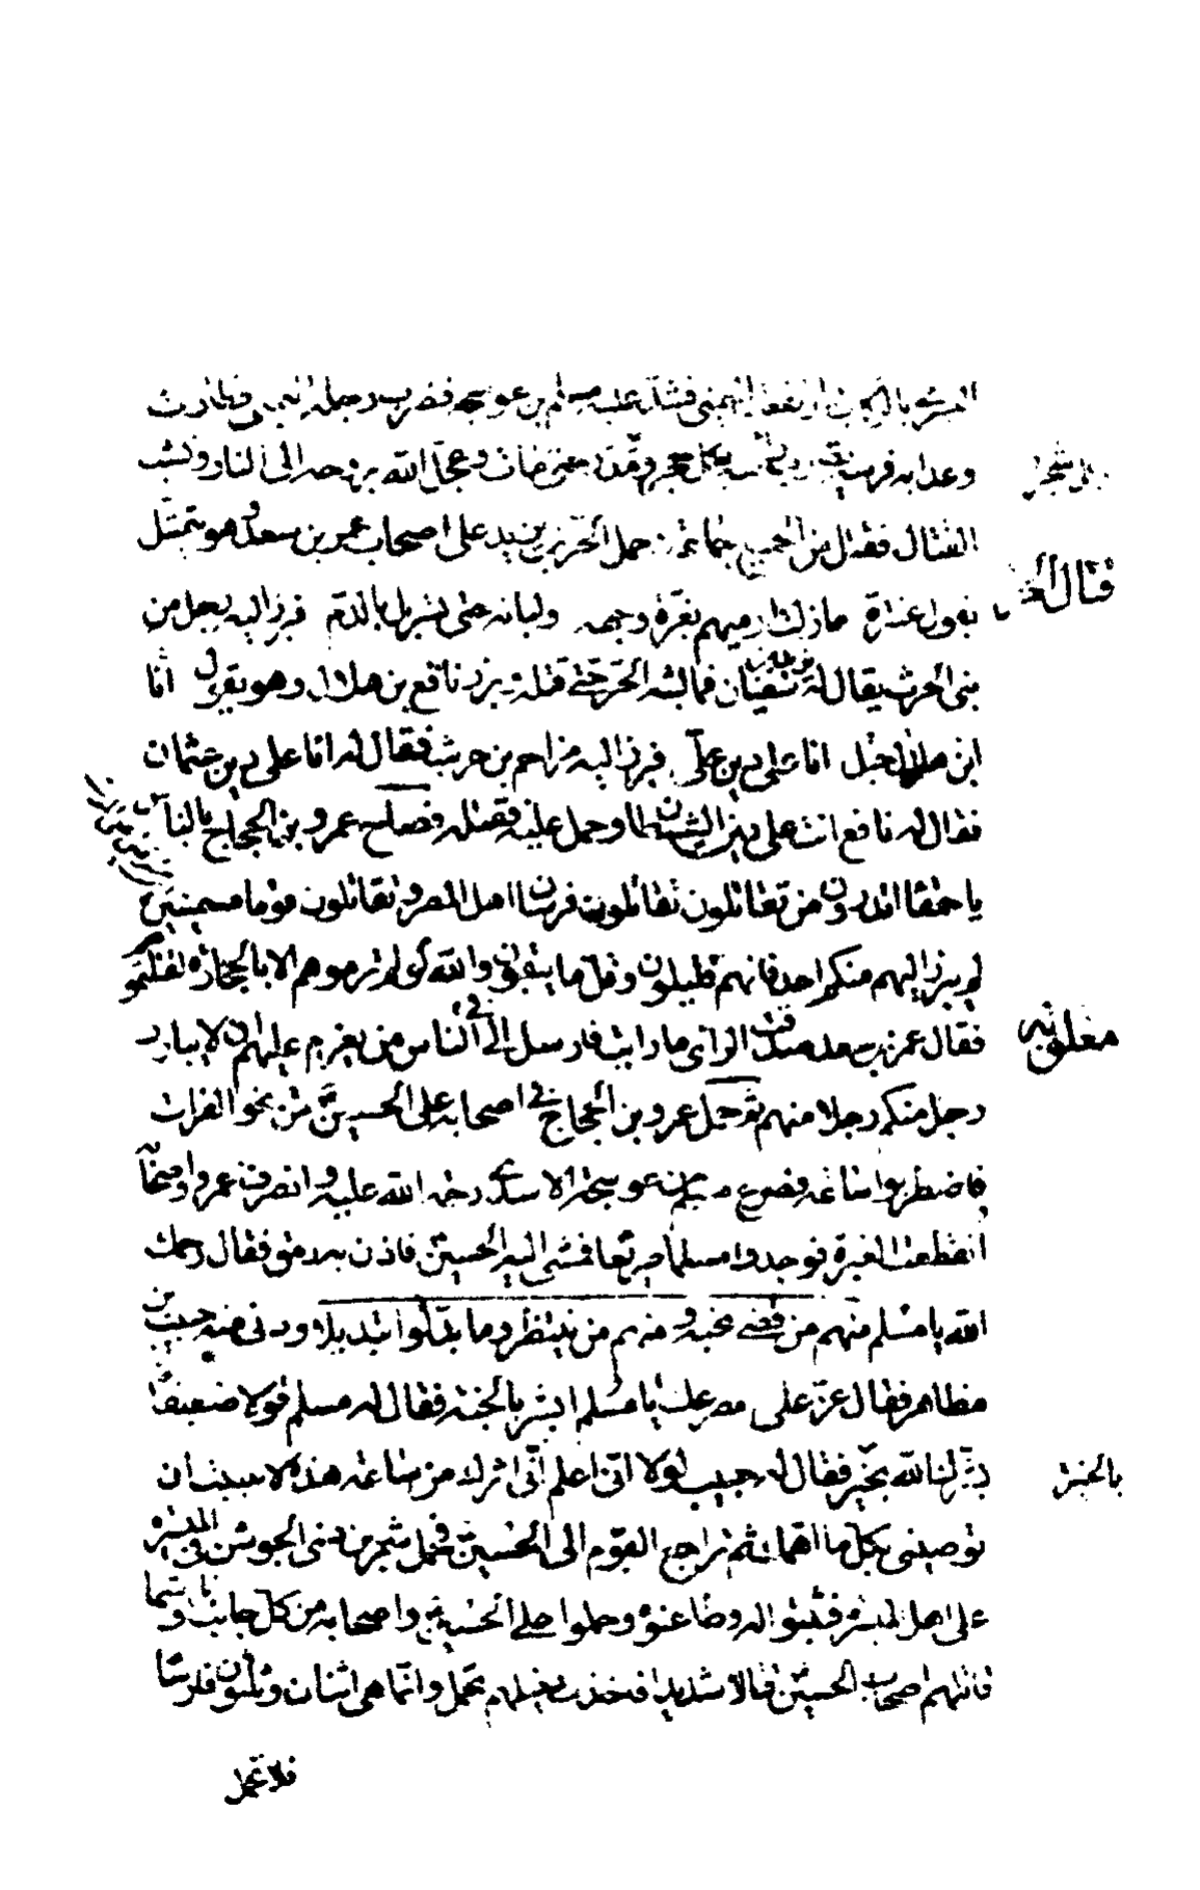 اليسرى بالركاب وارتفعت اليمنى فشد عليه مسلم بن عوسجه فضرب رجله اليمنى فطارت
وعدا به فرسه يضرب برأسه بكل حجر ومدر حتى مات وعجل الله بروحه الى النار ونشب
القتال فقتل من الجميع جماعة حمل الحر بن يزيد على اصحاب عمر بن سعد وهو يتمثل
بقول عنترة مازلت ارميهم بغرة وجهه ولبانه حتى تسربل بالدم فبرز اليه رجل من
بنى الحرث يقال له يزيد بن سفيان فما لبثه الحر حتى قتله وبرز نافع بن هلال وهو يقول انا
ابن هلال البجلى انا على دين على فبرز اليه مزاحم بن حريث فقال له انا على دين عثمان
فقال له نافع انت على دين الشيطان وحمل عليه فقتله فصاح عمرو بن الحجاج بالناس
يا حمقا اتدرون من تقاتلون تقاتلون فرسان اهل المصر وتقاتلون قوما مستميتين
لم يبرز اليهم منكم احد فانهم قليلون وقل ما يبقون والله لو لم ترموهم الا بالحجارة لقتلتموهم
فقال عمر بن سعد صدقت الراى ما رايت فارسل الى الناس من يعزم عليهم ان لا يبارز
رجل منكم رجلا منهم ثم حمل عمرو بن الحجاج فى اصحابه على الحسين ع من نحو الفرات
فاضطربوا ساعة فصرع مسلم بن عوسجة الاسدى رحمه الله عليه وانصرف عمرو واصحابه
انقطعت الغبرة فوجدوا مسلما صريعا فمشى اليه الحسين ع فاذن به رمق فقال رحمك
الله يا مسلم منهم من قضى نحبه ومنهم من ينتظر وما بدلوا تبديلا ودنى منه حبيب بن
مظاهر فقال عز على مصرعك يا مسلم ابشر بالجنة فقال له مسلم قولا ضعيفا
بشرك الله بخير فقال له حبيب لولا انى اعلم انى اثرك من ساعته هذه لاحببت ان
توصينى بكل ما اهمك ثم تراجع القوم الى الحسين ع فحمل شمر بن ذى الجوشن فى الميسرة
على اهل الميسرة فثبتوا له وطاعنوه وحملوا على الحسين ع واصحابه من كل جانب و
قاتلهم اصحاب الحسين ع قتالا شديدا فاخذت خيلهم تحمل وانما هى اثنان وثلثون فارسا
فلا تحمل
قتال
بالخير